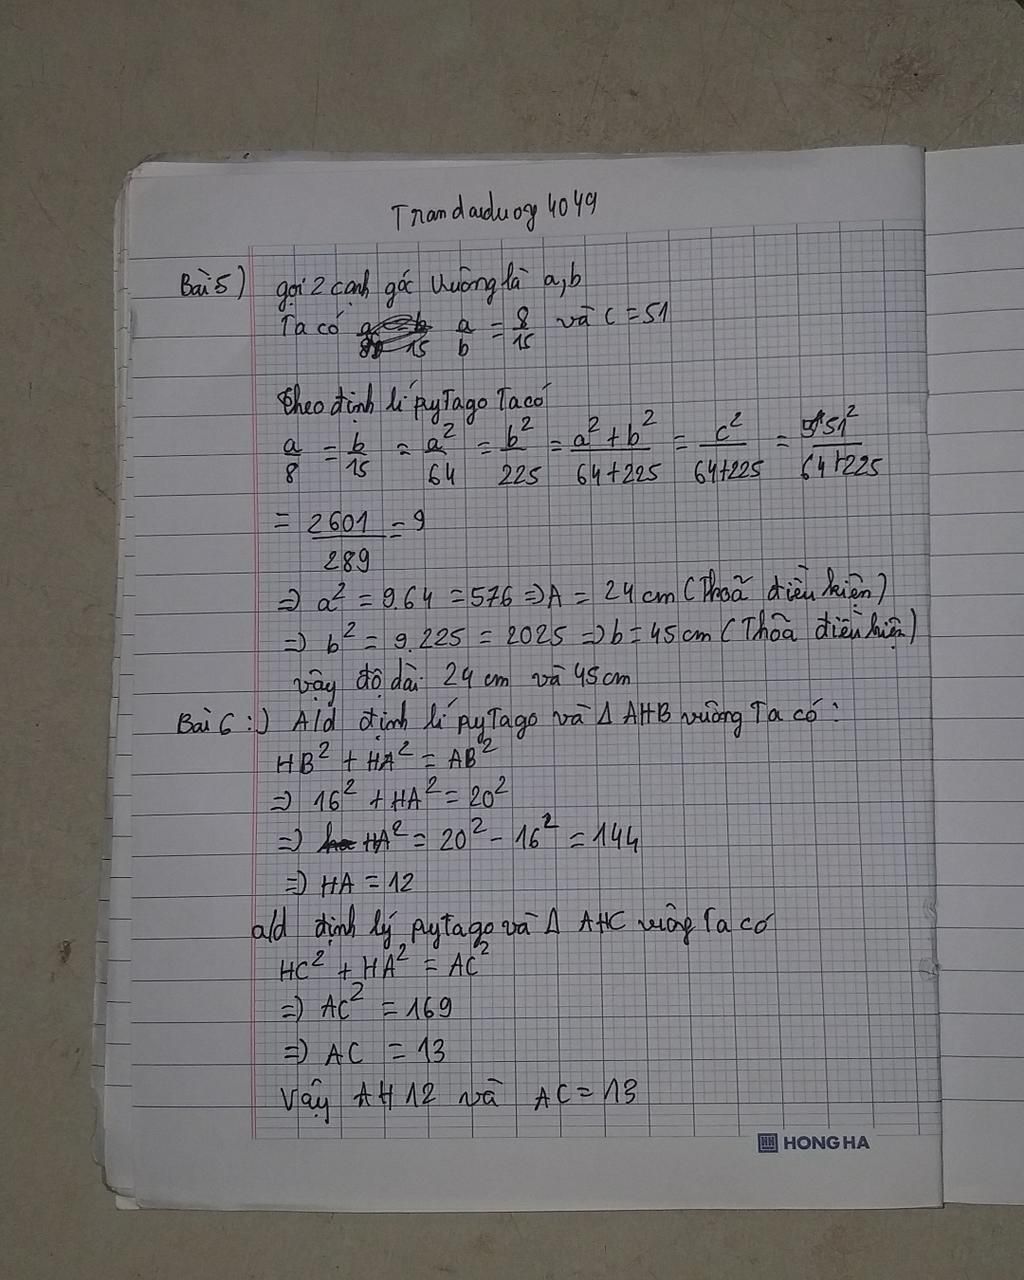 Trandaiduog 4049
Bài 5) gọi 2 cạnh góc vuông là a,b
Ta có 15 a/b = 8/15 và c = 51
theo định lí pyTago Ta có
a/8 = b/15 = a²/64 = b²/225 = a²+b²/64+225 = c²/64+225 = 51²/64+225
= 2601/289 = 9
=> a² = 9.64 = 576 => A = 24 cm (Thoã điều kiện)
=> b² = 9.225 = 2025 => b = 45cm (Thõa điều kiện)
vậy độ dài 24 cm và 45cm
Bài 6:) A/d định lí pyTago và Δ AHB vuông Ta có:
HB² + HA² = AB²
=> 16² + HA² = 20²
=> HA² = 20² - 16² = 144
=> HA = 12
a/d định lý pyTago và Δ AHC vuông Ta có
HC² + HA² = AC²
=> AC² = 169
=> AC = 13
Vậy AH 12 và AC = 13
HH HONG HA